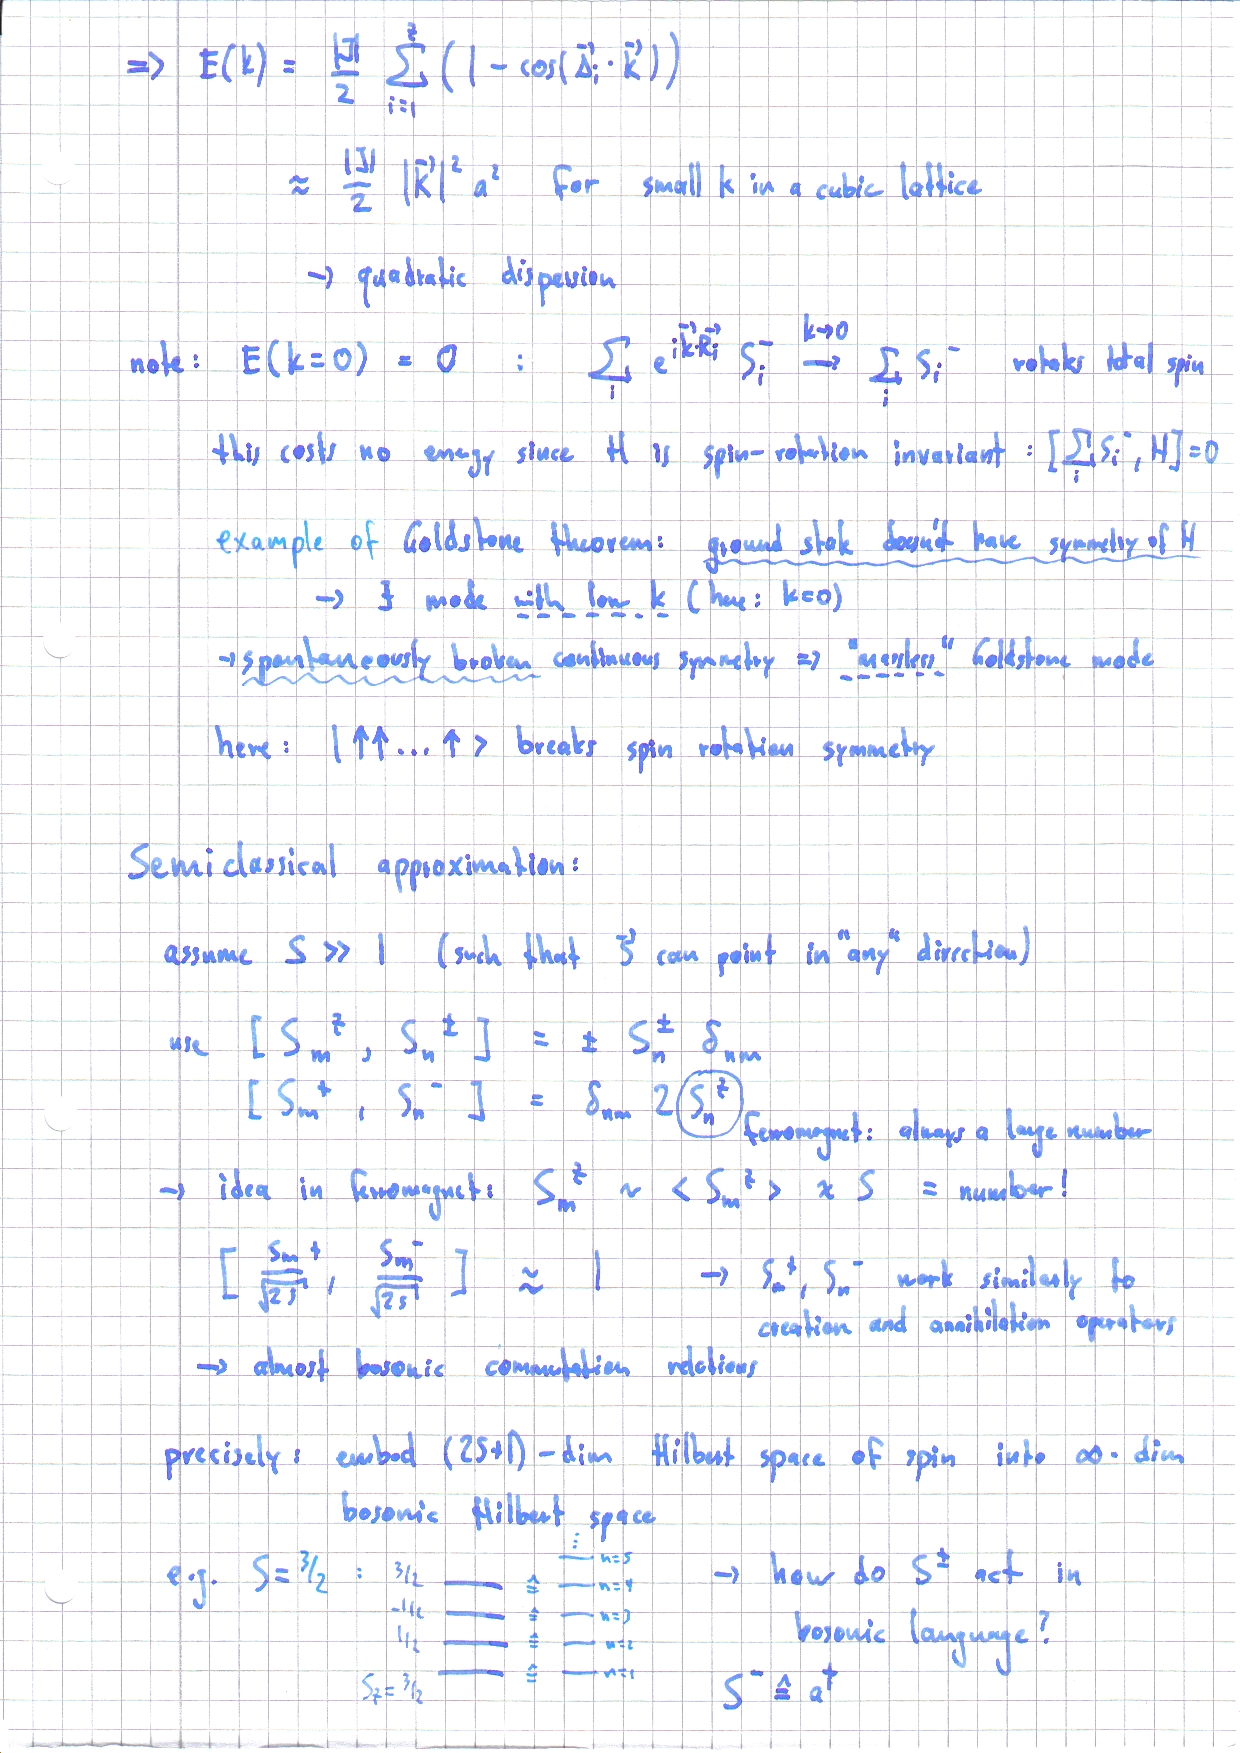 => E(k) = |J|/2 ∑_{i=1}^{z} (1 - cos(Δ⃗_i · k⃗))
≈ |J|/2 |k⃗|² a² for small k in a cubic lattice
→ quadratic dispersion
note: E(k=0) = 0 : ∑_i e^{i k⃗·R⃗_i} S_i^- →^{k→0} ∑_i S_i^- rotates total spin
this costs no energy since H is spin-rotation invariant : [∑_i S_i^-, H] = 0
example of Goldstone theorem: ground state doesn't have symmetry of H
→ ∃ mode with low k (here: k=0)
→ spontaneously broken continuous symmetry => "massless" Goldstone mode
here: |↑↑...↑> breaks spin rotation symmetry
Semiclassical approximation:
assume S >> 1 (such that S⃗ can point in "any" direction)
use [S_m^z, S_n^±] = ± S_n^± δ_{nm}
[S_m^+, S_n^-] = δ_{nm} 2 S_n^z
ferromagnet: always a large number
→ idea in ferromagnet: S_m^z ~ <S_m^z> ≈ S = number!
[S_m^+/√2S, S_m^-/√2S] ≈ 1 → S_m^+, S_n^- work similarly to
creation and annihilation operators
→ almost bosonic commutation relations
precisely: embed (2S+1)-dim Hilbert space of spin into ∞-dim
bosonic Hilbert space
e.g. S = 3/2 :
⋮
n=5
3/2 ≙ n=4
-1/2 ≙ n=3
1/2 ≙ n=2
S_z = 3/2 ≙ n=1
→ how do S^± act in
bosonic language?
S^- ≙ a^†